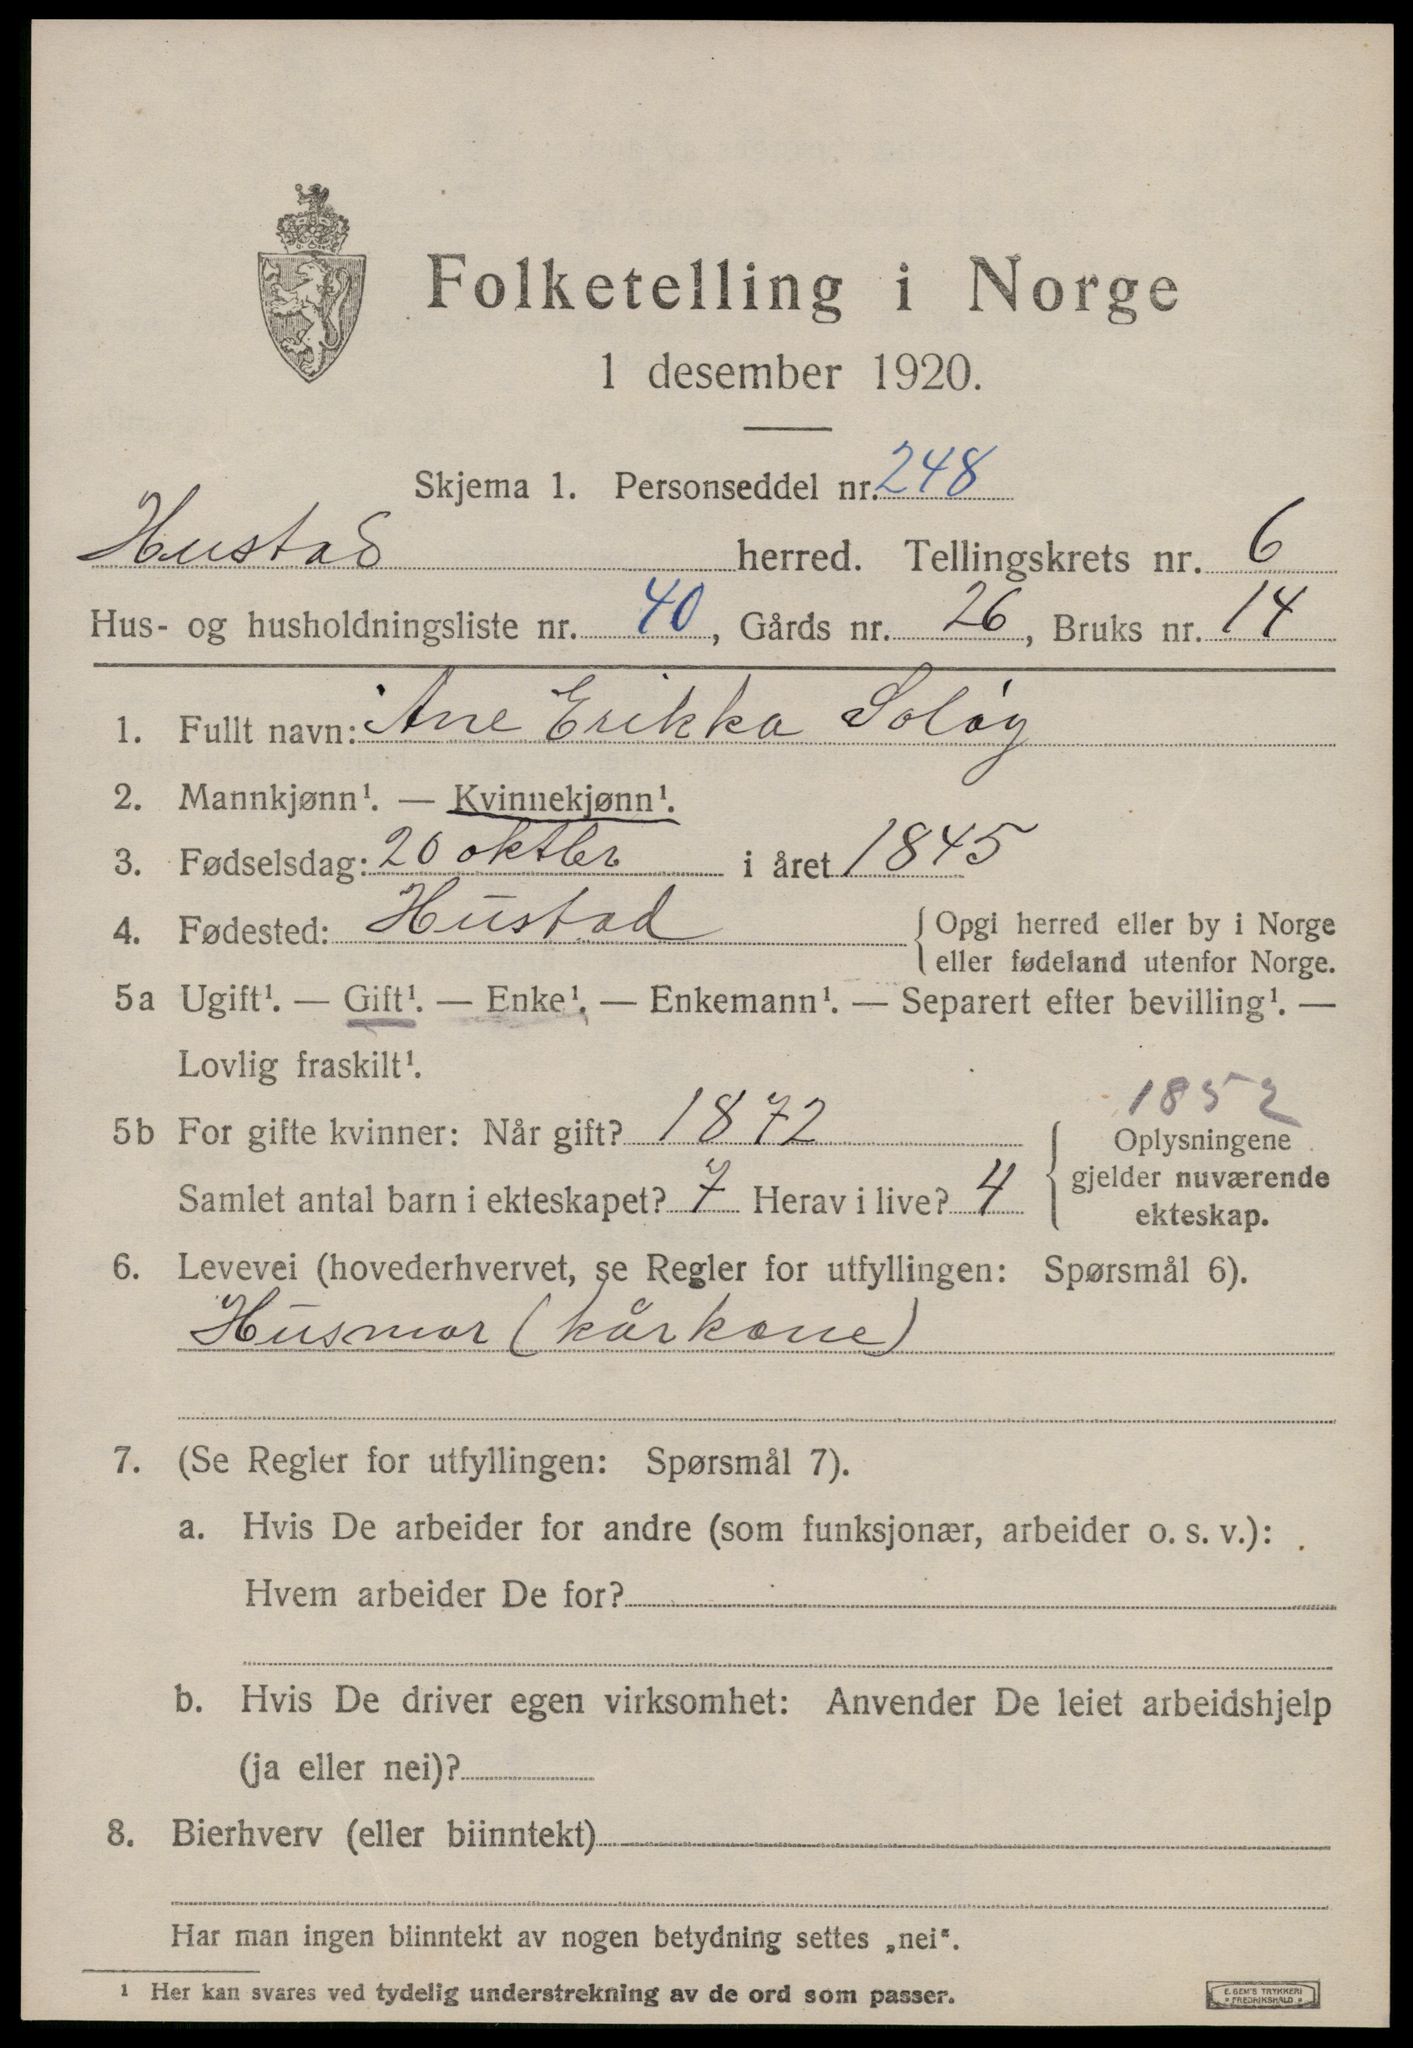 Folketelling i Norge
1 desember 1920.
Skjema 1. Personseddel nr. 248
Hustad herred. Tellingskrets nr. 6
Hus- og husholdningsliste nr. 40, Gårds nr. 26, Bruks nr. 14
1. Fullt navn: Ane Erikka Soløy
2. Mannkjønn¹. — Kvinnekjønn¹.
3. Fødselsdag: 20 oktbr i året 1845
4. Fødested: Hustad { Opgi herred eller by i Norge
eller fødeland utenfor Norge.
5a Ugift¹. — Gift¹. — Enke¹. — Enkemann¹. — Separert efter bevilling¹. —
Lovlig fraskilt¹.
1852
5b For gifte kvinner: Når gift? 1872 { Oplysningene
gjelder nuværende
Samlet antal barn i ekteskapet? 7 Herav i live? 4
ekteskap.
6. Levevei (hovederhvervet, se Regler for utfyllingen: Spørsmål 6).
Husmor (kårkone)
7. (Se Regler for utfyllingen: Spørsmål 7).
a. Hvis De arbeider for andre (som funksjonær, arbeider o. s. v.):
Hvem arbeider De for?
b. Hvis De driver egen virksomhet: Anvender De leiet arbeidshjelp
(ja eller nei)?
8. Bierhverv (eller biinntekt)
Har man ingen biinntekt av nogen betydning settes „nei".
¹ Her kan svares ved tydelig understrekning av de ord som passer.
E. SEM'S TRYKKERI
FREDRIKSHALD